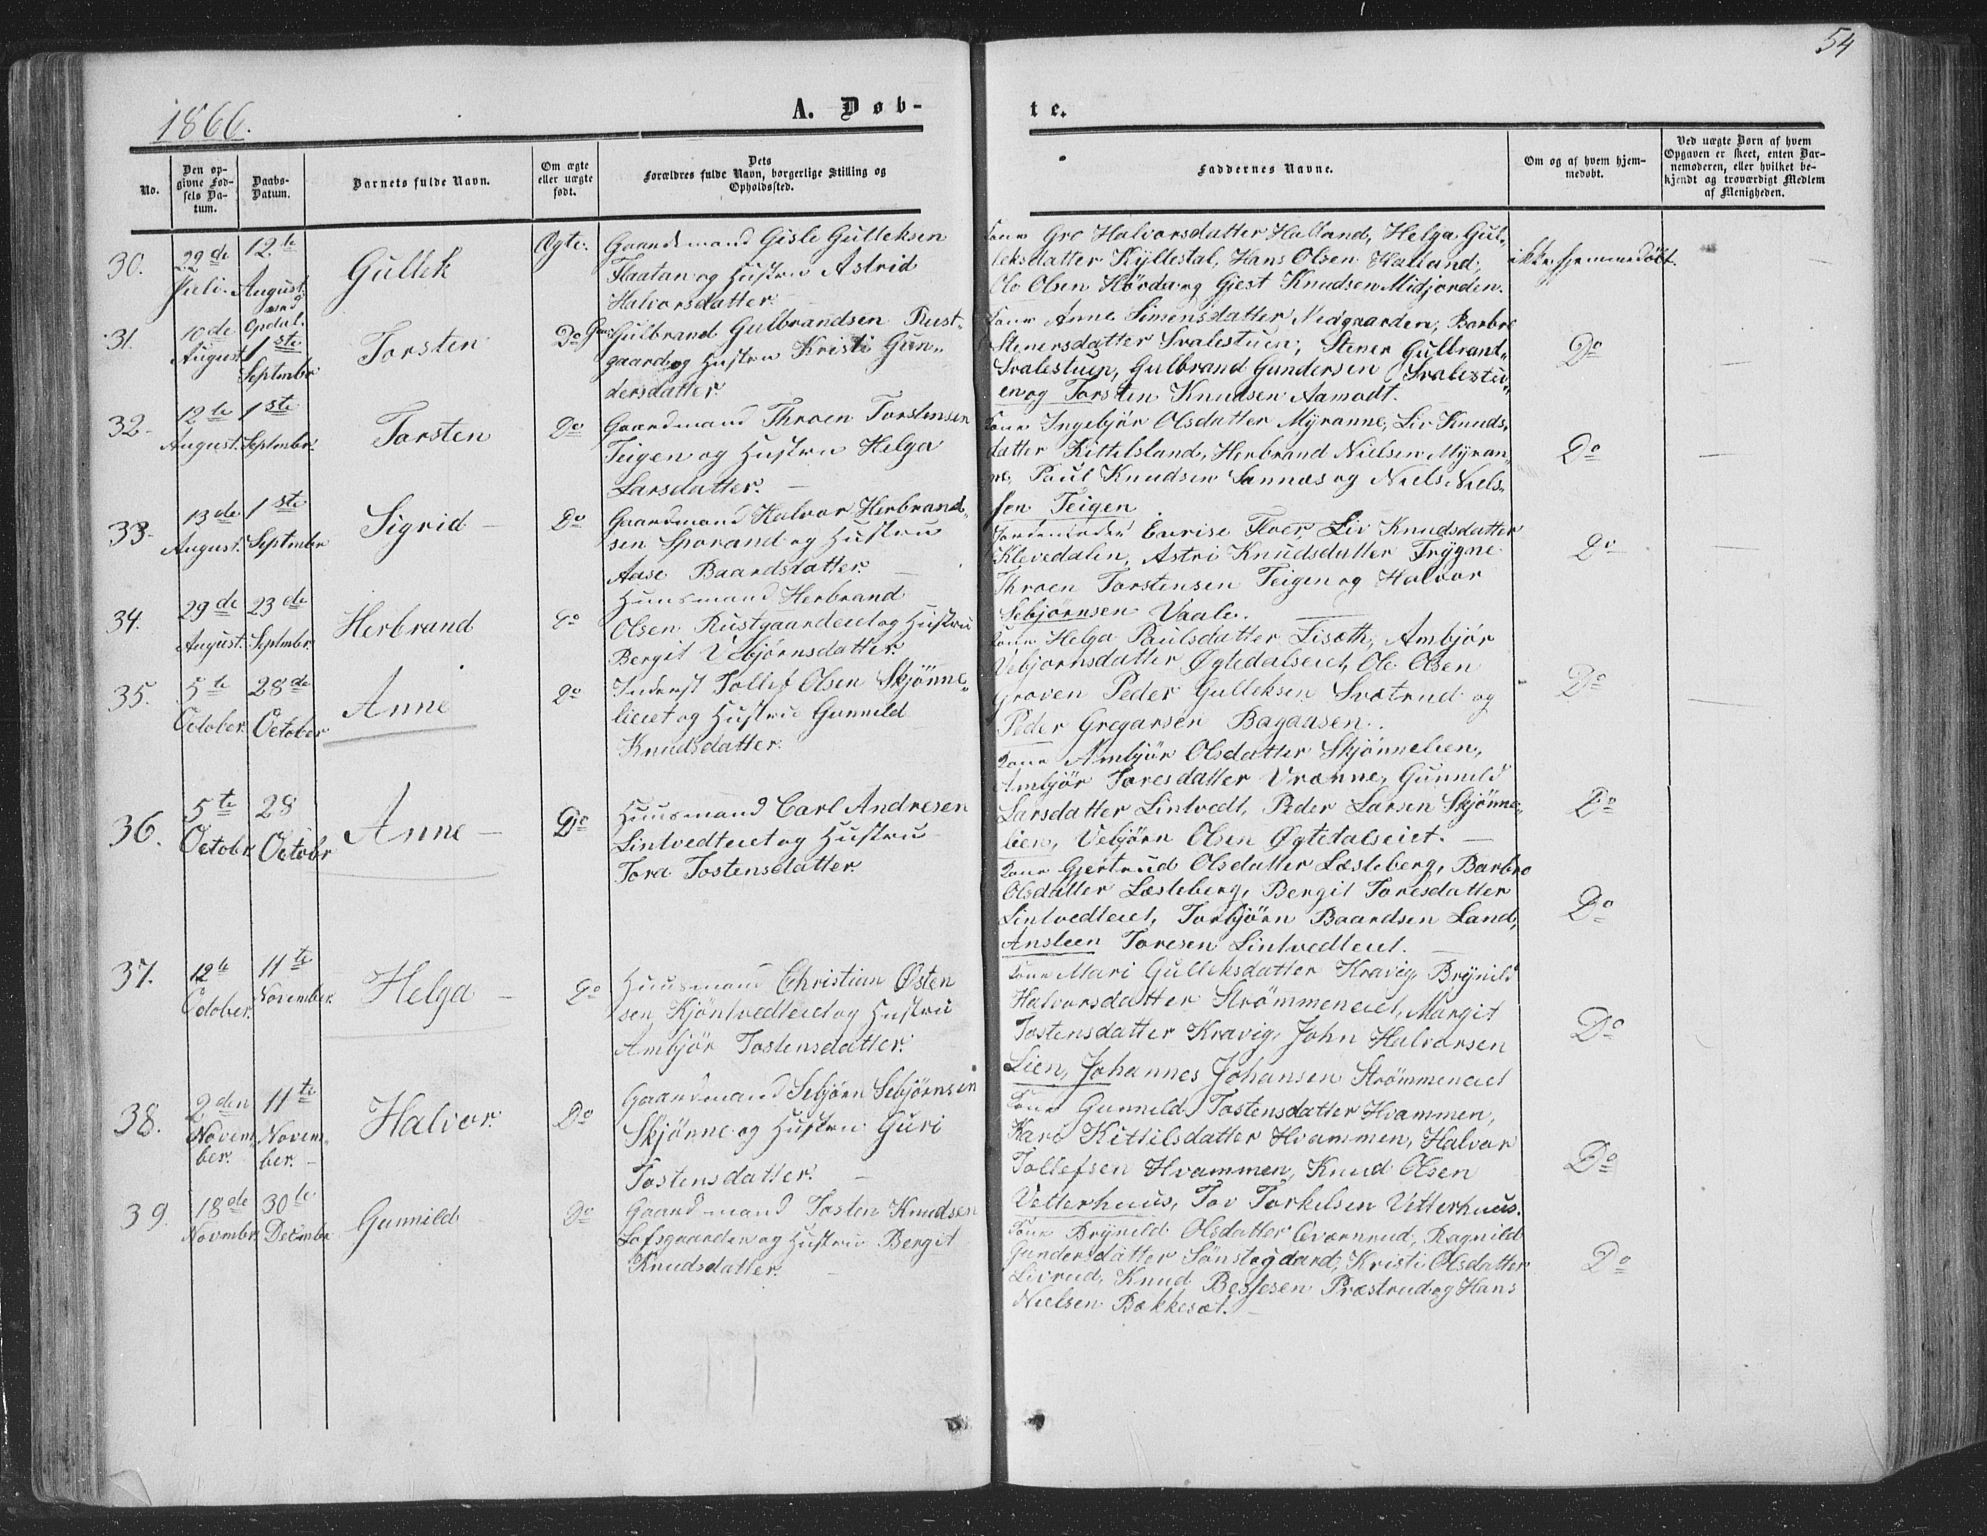 54
1866.
A. Døb-
te.
No.
Den op-
givne Fød-
sels Da-
tum.
Daabs-
Datum.
Barnets fulde Navn.
Om ægte
eller uægte
født.
Dets
Forældres fulde Navn, borgerlige Stilling og
Opholdssted.
Faddernes Navne.
Om og af hvem hjem-
medøbt.
Ved uægte Børn af hvem
Opgaven er skeet, enten Bar-
nemoderen, eller hvilket be-
kjendt og troværdigt Medlem
af Menigheden.
30.
29de
Juli.
12te
August
Opdal.
Gullek
Ægte.
Gaardmand Gisle Gulleksen
Flaatan og Hustru Astrid
Halvorsdatter.
Kone Gro Halvorsdatter Halland, Helga Gul-
leksdatter Kyllestal, Hans Olsen Halland,
Ole Olsen og Gjest Knudsen Midjorden.
ikke hjemmedøbt.
31.
10de
August
1ste
September
Torsten
Do
Gulbrand Gulbrandsen Rust-
gaard og Hustru Kristi Gun-
dersdatter.
Kone Anne Simensdatter Nedgaarden, Barbro
Stenersdatter Svalestuen, Stener Gulbrant-
Svalestuen, Gulbrand Gundersen Svalestu-
en og Torsten Knudsen Aamodt.
Do
32.
12te
August.
1ste
September.
Torsten
Do
Gaardmand Throen Torstensen
Teigen og Hustru Helga
Larsdatter.
Kone Ingebjør Olsdatter Myranne, Liv Knuds-
datter Kittelsland, Herbrand Nielsen Myran-
ne, Paul Knudsen Sannæs og Niels Niels-
sen Teigen
Do
33.
13de
August.
1ste
September
Sigrid
Do
Gaardmand Halvor Herbrand-
sen Sporand og Hustru
Aase Baardsdatter.
Floer, Liv Knudsdatter
Klevedalen, Astri Knudsdatter Frygne
Throen Torstensen Teigen og Halvor
Sebjørnsen Vaale.
Do
34.
29de
August.
23de
September.
Herbrand
Do
Huusmand Herbrand
Olsen Rustgaardeiet og Hustru
Bergit Vebjørnsdatter.
Kone Helga Paulsdatter Liseth, Ambjør
Vebjørnsdatter Øgtedalseiet, Ole Olsen
Groven Peder Gulleksen Svætrud og
Peder Gregarsen Bagaasen.
Do
35.
5te
October.
28de
October
Anne
Do
Inderst Tollef Olsen Skjønne-
lieiet og Hustru Gunnild
Knudsdatter.
Kone Ambjør Olsdatter Skjønnelien,
Ambjør Toresdatter Vrænne, Gunnild
Larsdatter Lintvedt, Peder Larsen Skjønne-
lien, Vebjørn Olsen Øgtedalseiet.
Do
36.
5te
Octobr.
28
Octobr
Anne
Do
Huusmand Carl Andresen
Lintvedteiet og Hustru
Tora Tostensdatter.
Kone Gjertrud Olsdatter Læsteberg, Barbro
Olsdatter Læsteberg, Bergit Toresdatter
Lintvedteiet, Torbjørn Baardsen Land,
Ansteen Toresen Lintvedteiet.
Do
37.
12te
October.
11te
November.
Helga
Do
Huusmand Christian Østen
sen Kjøntvedteiet og Hustru
Ambjør Tostensdatter.
Kone Mari Gulleksdatter Kravig, Brynild
Halvorsdatter Strømmeneiet, Margit
Tostensdatter Kravig, John Halvorsen
Lien, Johannes Johansen Strømmeneiet
Do
38.
2den
Novem-
ber.
11te
Novem-
ber.
Halvor.
Do
Gaardmand Sebjørn Sebjørnsen
Skjønne og Hustru Guri
Tostensdatter.
Kone Gunnild Tostensdatter Hvammen,
Kari Kittilsdatter Hvammen, Halvor
Tollefsen Hvammen, Knud Olsen
Vetterhuus, Tov Torkelsen Vetterhuus.
Do
39.
18de
Novmber.
30te
Decmbr.
Gunnild
Do
Gaardmand Tosten Knudsen
Lofsgaarden og Hustru Bergit
Knudsdatter.
Kone Brynild Olsdatter Qværnrud, Ragnild
Gundersdatter Sønstegaard, Kristi Olsdatter
Livrud, Knud Bessesen Præstrud og Hans
Nielsen Bækkesæt.
Do